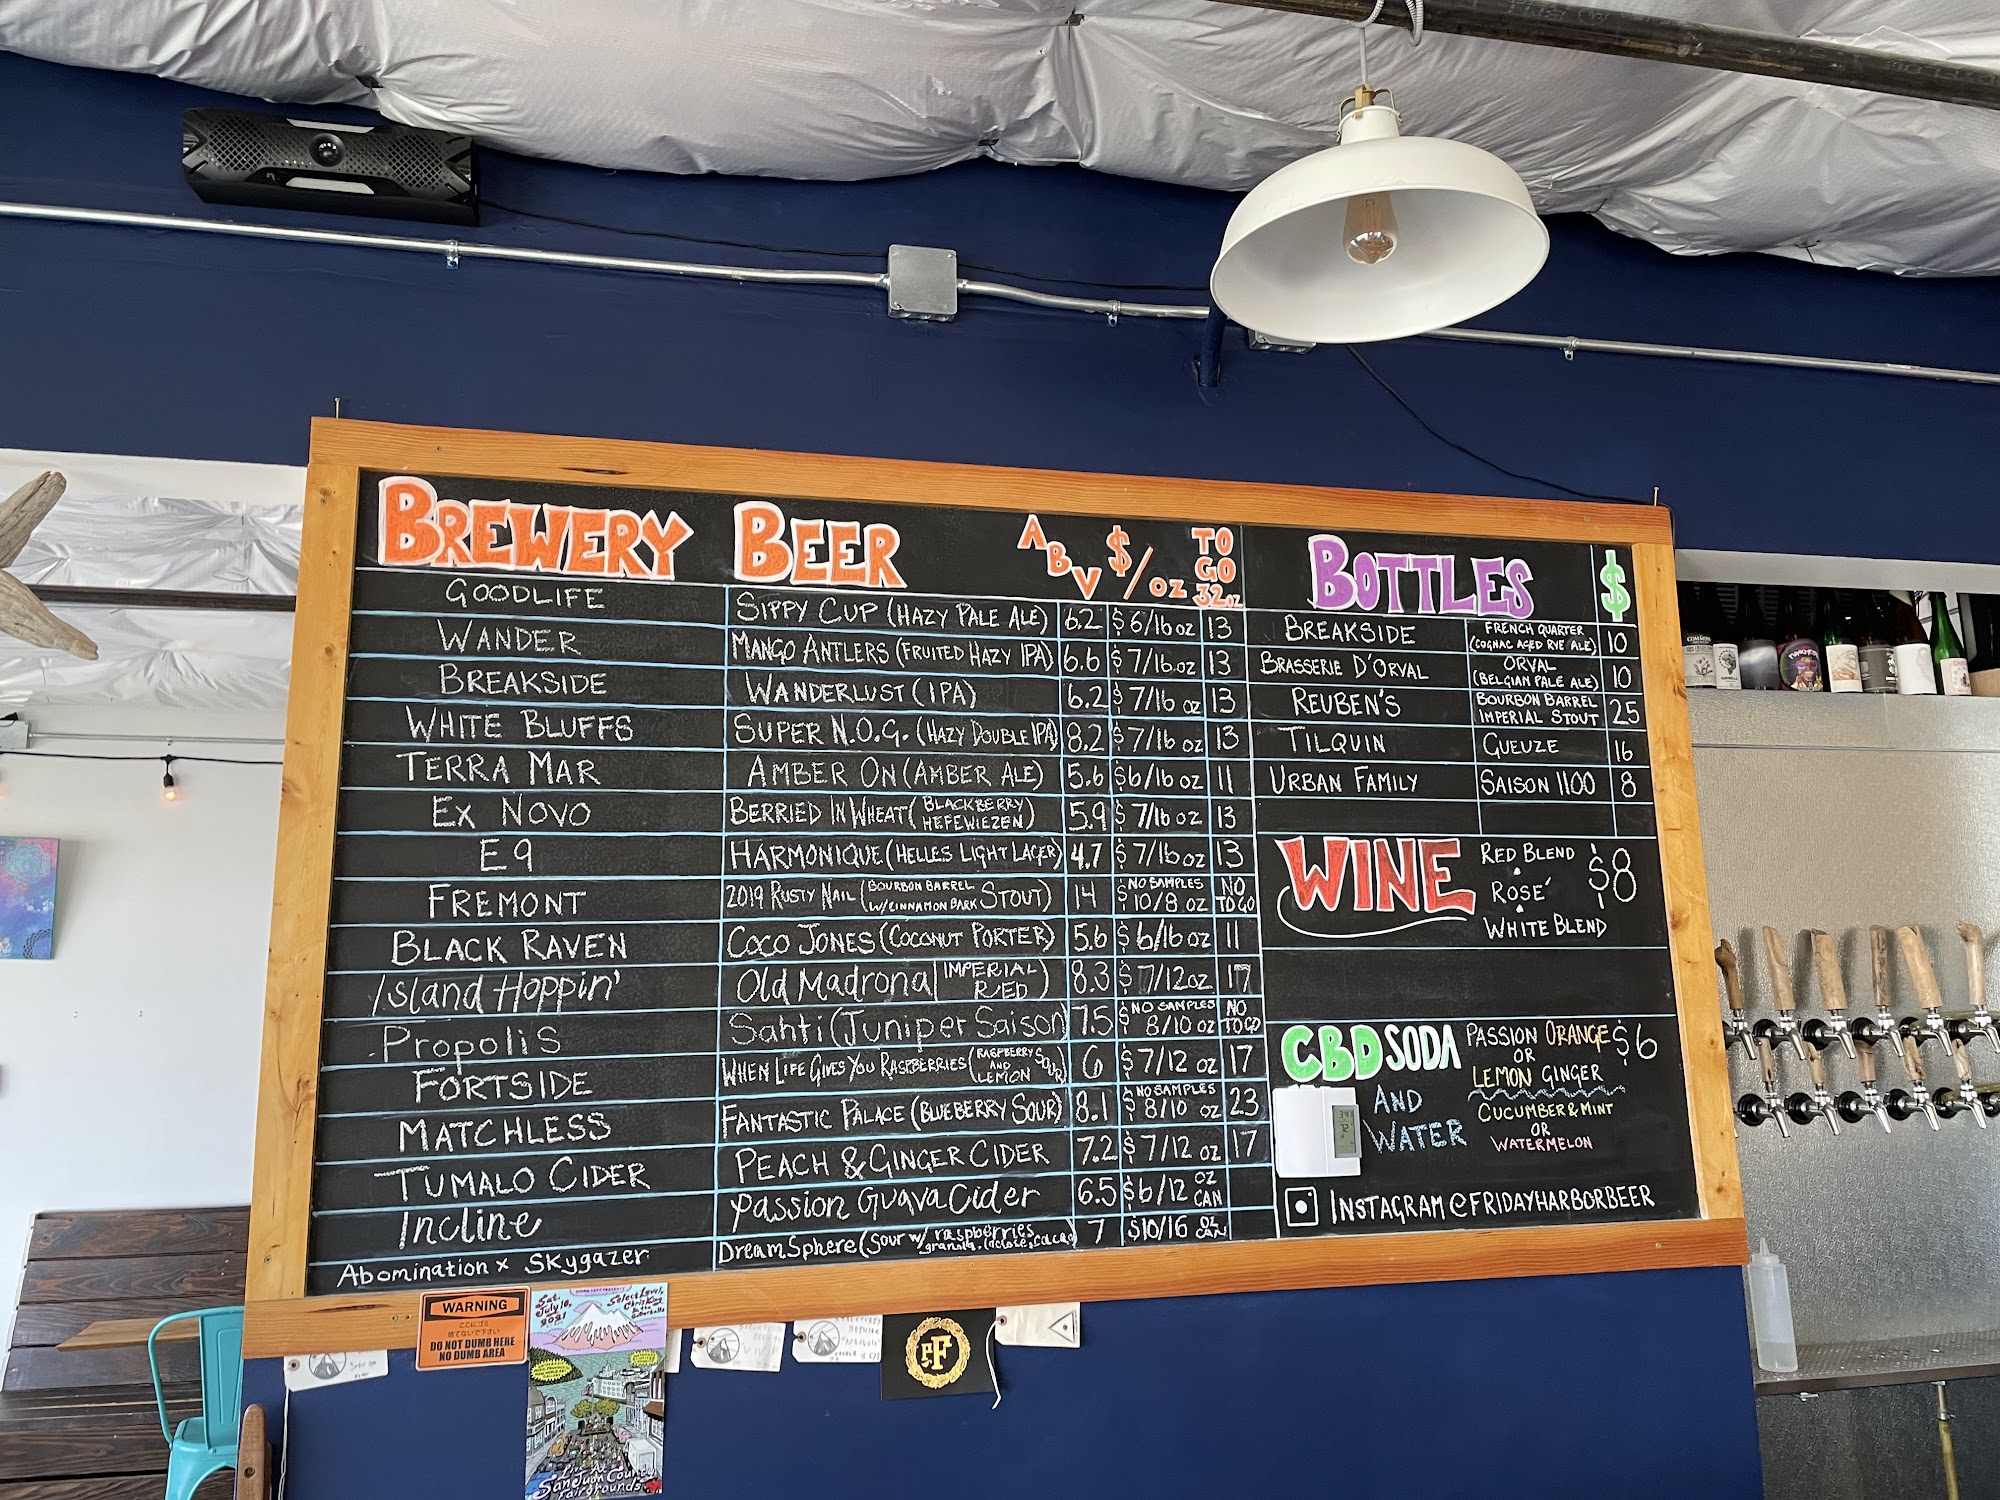 BREWERY BEER ABV $/OZ TO GO 32oz
GOODLIFE SIPPY CUP (HAZY PALE ALE) 6.2 $6/16oz 13
WANDER MANGO ANTLERS (FRUITED HAZY IPA) 6.6 $7/16oz 13
BREAKSIDE WANDERLUST (IPA) 6.2 $7/16 oz 13
WHITE BLUFFS SUPER N.O.G. (HAZY DOUBLE IPA) 8.2 $7/16 oz 13
TERRA MAR AMBER ON (AMBER ALE) 5.6 $6/16oz 11
EX NOVO BERRIED IN WHEAT (BLACKBERRY HEFEWIEZEN) 5.9 $7/16oz 13
E9 HARMONIQUE (HELLES LIGHT LAGER) 4.7 $7/16oz 13
FREMONT 2019 RUSTY NAIL (BOURBON BARREL W/CINNAMON BARK STOUT) 14 NO SAMPLES $10/8 oz NO TO GO
BLACK RAVEN COCO JONES (COCONUT PORTER) 5.6 $6/16 oz 11
Island Hoppin' Old Madrona (IMPERIAL RED) 8.3 $7/12oz 17
Propolis Sahti (Juniper Saison) 7.5 NO SAMPLES $8/10 oz NO TO GO
FORTSIDE WHEN LIFE GIVES YOU RASPBERRIES (RASPBERRY AND LEMON SOUR) 6 $7/12 oz 17
MATCHLESS FANTASTIC PALACE (BLUEBERRY SOUR) 8.1 NO SAMPLES $8/10 oz 23
TUMALO CIDER PEACH & GINGER CIDER 7.2 $7/12 oz 17
Incline Passion Guava Cider 6.5 $6/12 OZ CAN
Abomination x Skygazer DreamSphere (sour w/ raspberries, granola, lactose, cacao) 7 $10/16 OZ CAN
BOTTLES $
BREAKSIDE FRENCH QUARTER (COGNAC AGED RYE ALE) 10
BRASSERIE D'ORVAL ORVAL (BELGIAN PALE ALE) 10
REUBEN'S BOURBON BARREL IMPERIAL STOUT 25
TILQUIN GUEUZE 16
URBAN FAMILY SAISON 1100 8
WINE RED BLEND • ROSE' • WHITE BLEND $8
CBD SODA PASSION ORANGE $6
OR
LEMON GINGER
AND WATER
CUCUMBER & MINT
OR
WATERMELON
INSTAGRAM @FRIDAYHARBORBEER
WARNING
ここにゴミ
捨てないで下さい
DO NOT DUMB HERE
NO DUMB AREA
Sat. July 10, 2021
Live At
San Juan County
Fairgrounds